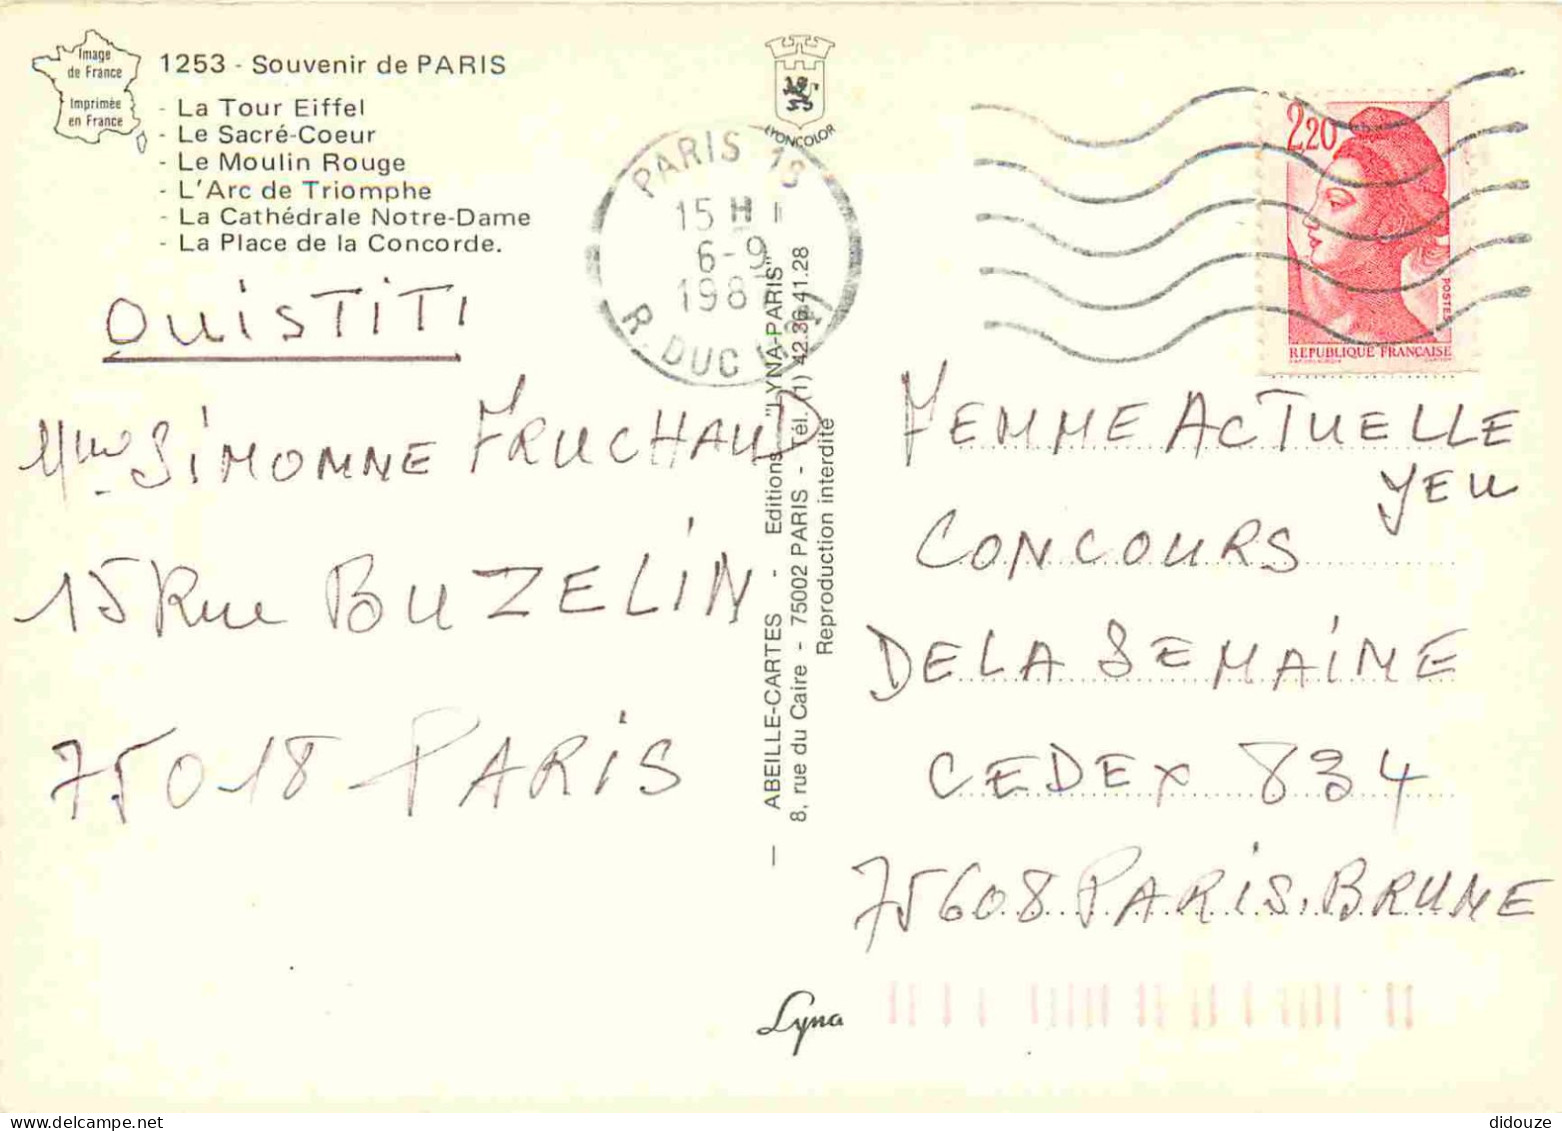 Image
de France
Imprimée
en France
1253 - Souvenir de PARIS
- La Tour Eiffel
- Le Sacré-Coeur
- Le Moulin Rouge
- L'Arc de Triomphe
- La Cathédrale Notre-Dame
- La Place de la Concorde.
OUISTITI
Mme SIMONNE FRUCHAUD
15 Rue BUZELIN
75018 PARIS
LYONCOLOR
PARIS 18
15 H
6-9
198
R. DUC
— ABEILLE-CARTES - Editions "LYNA-PARIS"
8, rue du Caire - 75002 PARIS - Tél. (1) 42.36.41.28
Reproduction interdite
Lyna
2,20
POSTES
REPUBLIQUE FRANÇAISE
FEMME ACTUELLE
JEU
CONCOURS
DE LA SEMAINE
CEDEX 834
75608 PARIS. BRUNE
didouze